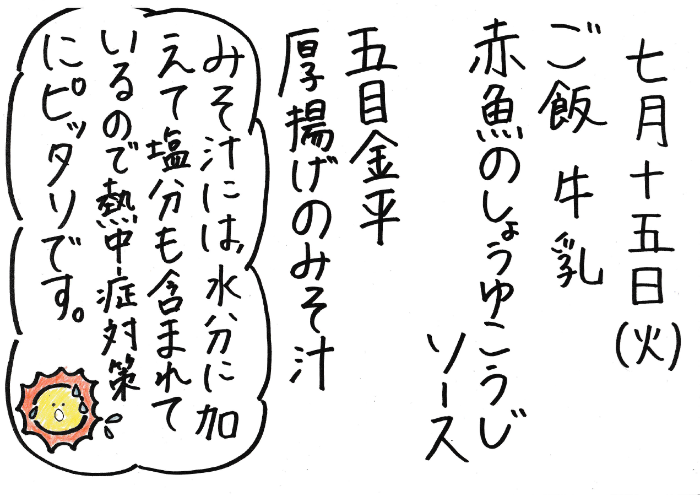 七月十五日(火)
ご飯 牛乳
赤魚のしょうゆこうじ
ソース
五目金平
厚揚げのみそ汁
みそ汁には、水分に加
えて塩分も含まれて
いるので熱中症対策
にピッタリです。